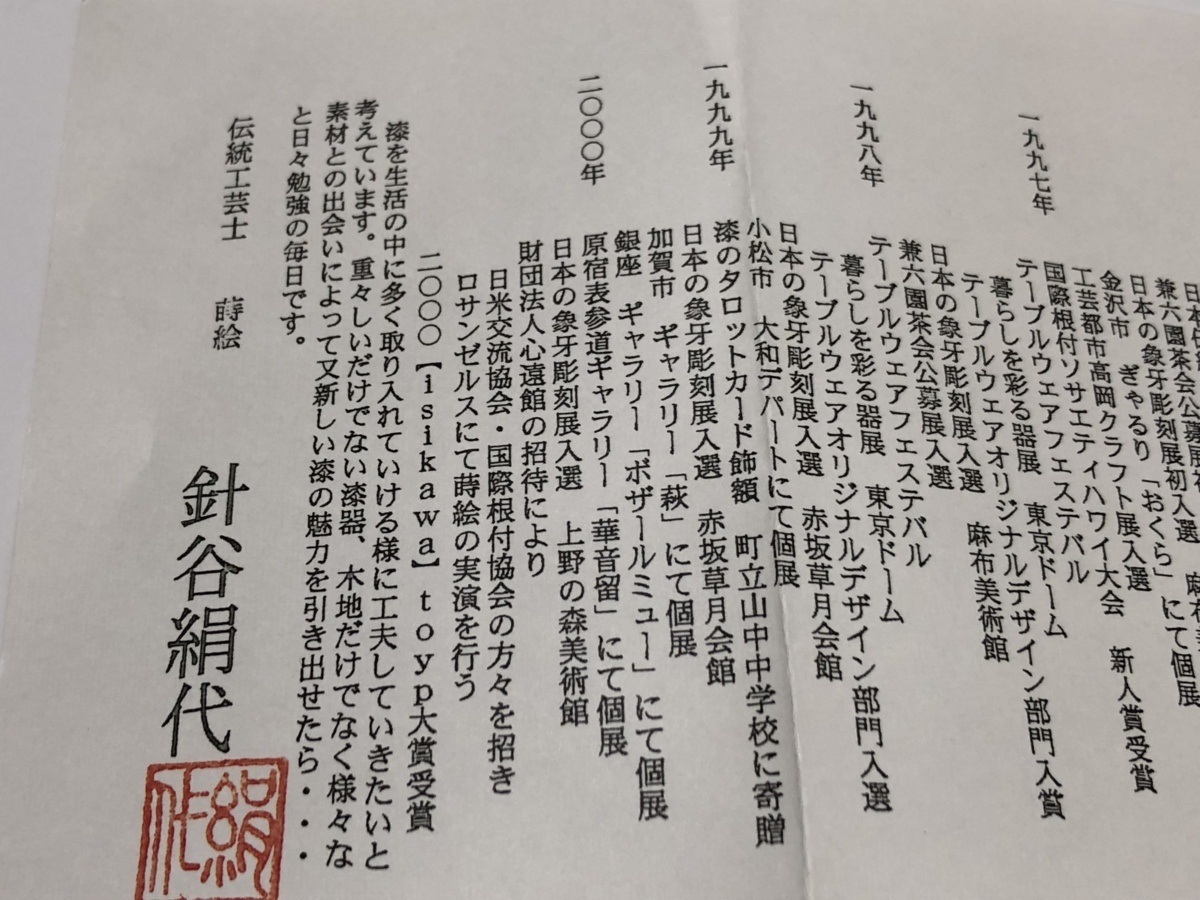 兼六園茶会公募展初
日本の象牙彫刻展初入選
金沢市　ぎゃるり「おくら」にて個展
工芸都市高岡クラフト展入選
国際根付ソサエティハワイ大会　新人賞受賞
一九九七年　テーブルウェアフェステバル
暮らしを彩る器展　東京ドーム
テーブルウェアオリジナルデザイン部門入賞
日本の象牙彫刻展入選　麻布美術館
兼六園茶会公募展入選
一九九八年　テーブルウェアフェステバル
暮らしを彩る器展　東京ドーム
テーブルウェアオリジナルデザイン部門入選
日本の象牙彫刻展入選　赤坂草月会館
小松市　大和デパートにて個展
一九九九年　漆のタロットカード飾額　町立山中中学校に寄贈
日本の象牙彫刻展入選　赤坂草月会館
加賀市　ギャラリー「萩」にて個展
銀座　ギャラリー「ボザールミュー」にて個展
二〇〇〇年　原宿表参道ギャラリー「華音留」にて個展
日本の象牙彫刻展入選　上野の森美術館
財団法人心遠館の招待により
日米交流協会・国際根付協会の方々を招き
ロサンゼルスにて蒔絵の実演を行う
二〇〇〇【isikawa】toyp大賞受賞
漆を生活の中に多く取り入れていける様に工夫していきたいと
考えています。重々しいだけでない漆器、木地だけでなく様々な
素材との出会いによって又新しい漆の魅力を引き出せたら・・・
と日々勉強の毎日です。
伝統工芸士　蒔絵　針谷絹代
絹代